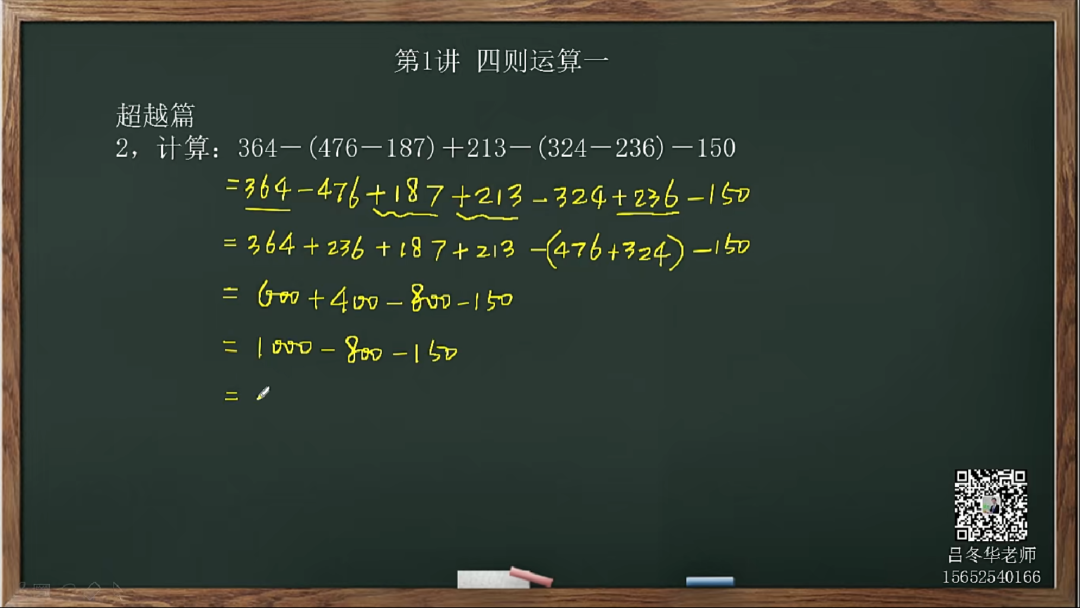 第1讲 四则运算一
超越篇
2，计算：364－(476－187)＋213－(324－236)－150
=364-476+187+213-324+236-150
=364+236+187+213-(476+324)-150
=600+400-800-150
=1000-800-150
=
吕冬华老师
15652540166